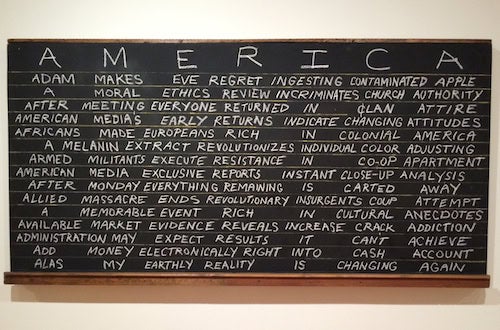 A M E R I C A
ADAM MAKES EVE REGRET INGESTING CONTAMINATED APPLE
A MORAL ETHICS REVIEW INCRIMINATES CHURCH AUTHORITY
AFTER MEETING EVERYONE RETURNED IN CLAN ATTIRE
AMERICAN MEDIA'S EARLY RETURNS INDICATE CHANGING ATTITUDES
AFRICANS MADE EUROPEANS RICH IN COLONIAL AMERICA
A MELANIN EXTRACT REVOLUTIONIZES INDIVIDUAL COLOR ADJUSTING
ARMED MILITANTS EXECUTE RESISTANCE IN CO-OP APARTMENT
AMERICAN MEDIA EXCLUSIVE REPORTS INSTANT CLOSE-UP ANALYSIS
AFTER MONDAY EVERYTHING REMAINING IS CARTED AWAY
ALLIED MASSACRE ENDS REVOLUTIONARY INSURGENTS COUP ATTEMPT
A MEMORABLE EVENT RICH IN CULTURAL ANECDOTES
AVAILABLE MARKET EVIDENCE REVEALS INCREASE CRACK ADDICTION
ADMINISTRATION MAY EXPECT RESULTS IT CAN'T ACHIEVE
ADD MONEY ELECTRONICALLY RIGHT INTO CASH ACCOUNT
ALAS MY EARTHLY REALITY IS CHANGING AGAIN